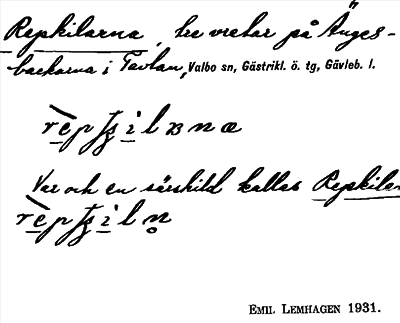 Repkilarna, tre vretar på Änges-
backarna i Tavlan, Valbo sn, Gästrikl. ö. tg, Gävleb. l.
Var och en särskild kallas Repkilan
EMIL LEMHAGEN 1931.